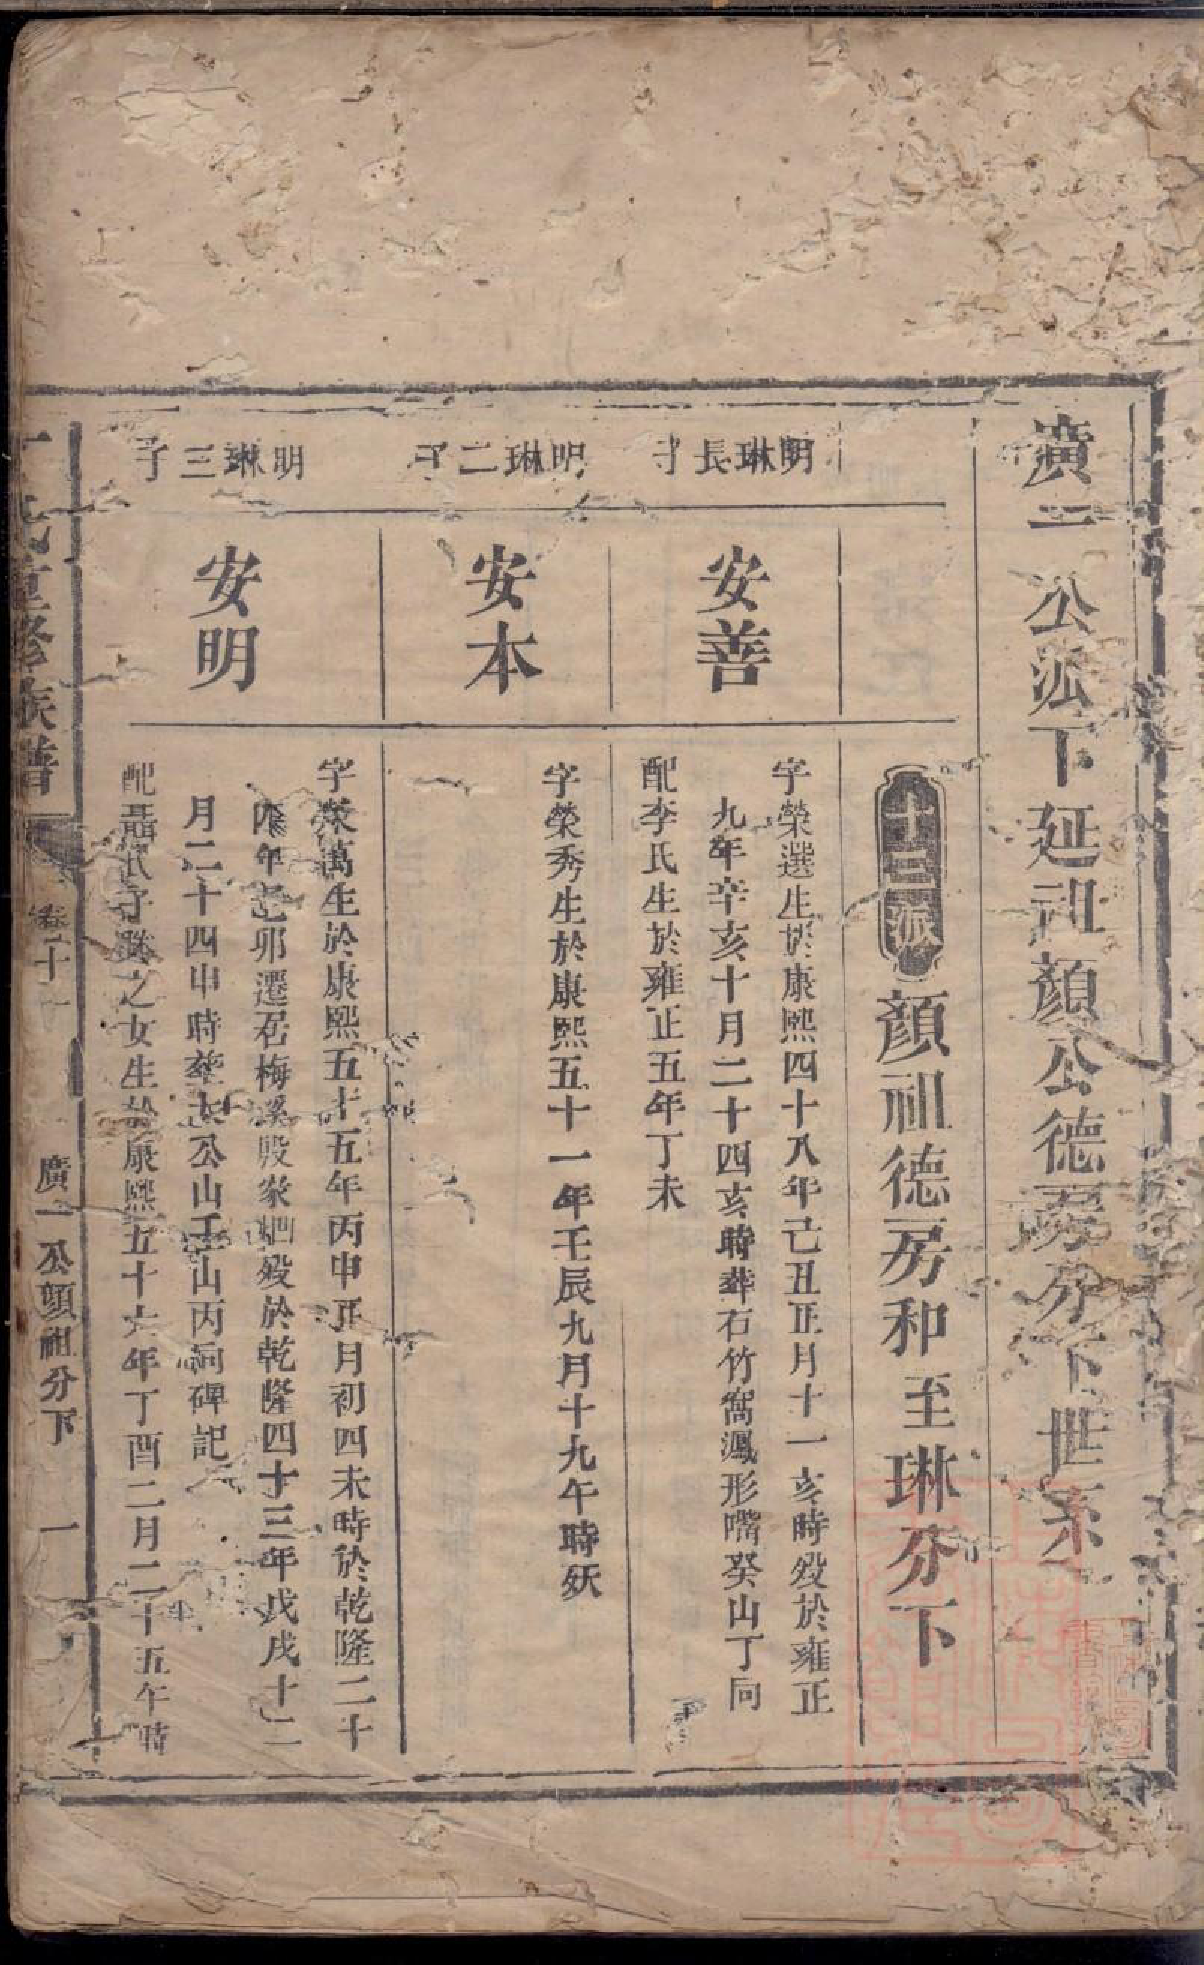 廣一公派下延祖顏公德房分下世系
十二派
顏祖德房和至琳分下
明琳長子
安善
字榮選生於康熙四十八年己丑正月十一亥時歿於雍正
九年辛亥十月二十四亥時葬石竹窩鳳形嘴癸山丁向
配李氏生於雍正五年丁未
明琳二子
安本
字榮秀生於康熙五十一年壬辰九月十九午時殀
明琳三子
安明
字榮萬生於康熙五十五年丙申正月初四未時於乾隆二十
四年己卯遷居梅溪歿於乾隆四十三年戊戌十二
月二十四申時葬公山壬山丙向碑記
配聶氏之女生於康熙五十六年丁酉二月二十五午時
氏重修族譜
卷二十
廣一公顏祖分下
一